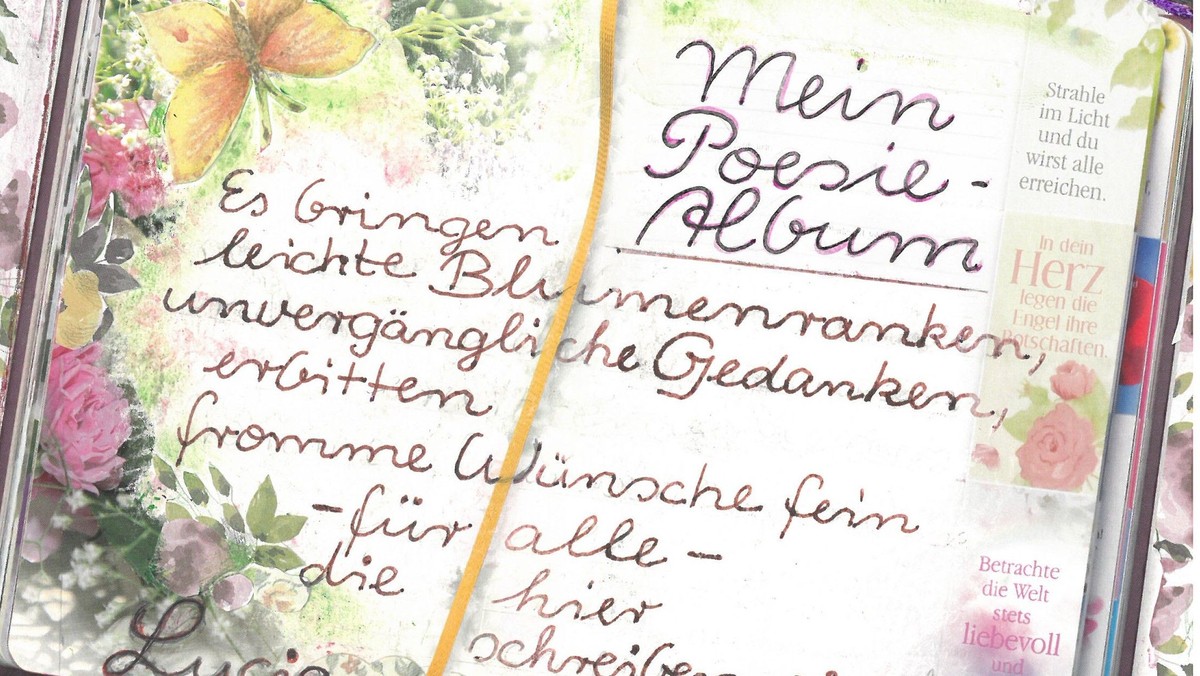 Mein
Poesie-
Album
Es bringen
leichte Blumenranken,
unvergängliche Gedanken,
erbitten
fromme Wünsche fein
- für alle -
die hier
Strahle
im Licht
und du
wirst alle
erreichen.
In dein
Herz
legen die
Engel ihre
Botschaften.
Betrachte
die Welt
stets
liebevoll
und